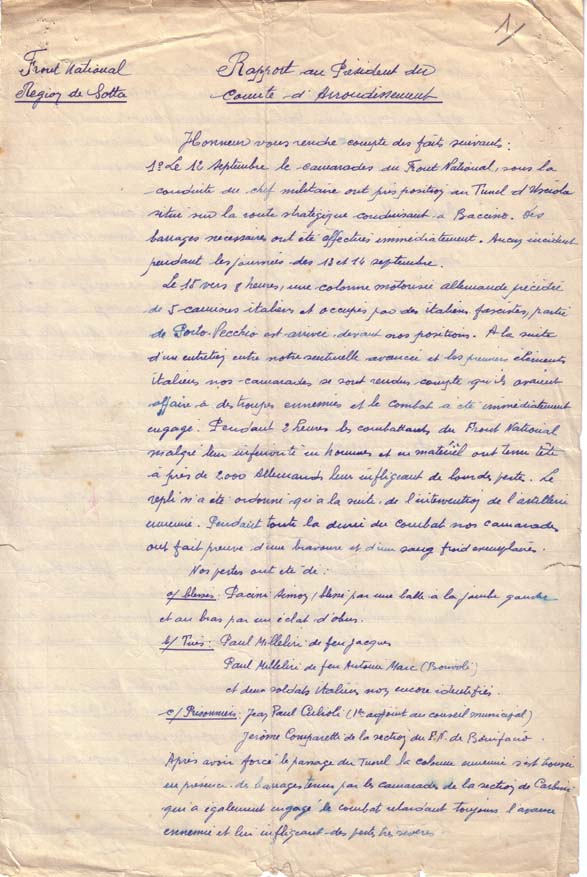 1/
Front National
Région de Sotta
Rapport au Président du
Comité d'Arrondissement
Honneur vous rendre compte des faits suivants :
1° Le 12 Septembre le camarades du Front National, sous la
conduite du chef militaire ont pris position au Tunel d'Usciolo
situé sur la route stratégique conduisant à Baccino. Des
barrages nécessaires ont été effectués immédiatement. Aucun incident
pendant les journées des 13 et 14 septembre.
Le 15 vers 8 heures, une colonne motorisée allemande précédée
de 5 camions italiens et occupés par des italiens fascistes, partie
de Porto-Vecchio est arrivée devant nos positions. A la suite
d'un entretien entre notre sentinelle avancée et les premiers éléments
italiens nos camarades se sont rendus compte qu'ils avaient
affaire à des troupes ennemies et le combat a été immédiatement
engagé. Pendant 2 heures les combattants du Front National
malgré leur infériorité en hommes et en matériel ont tenu tête
à près de 2000 Allemands leur infligeant de lourdes perte. Le
repli n'a été ordonné qu'à la suite de l'intervention de l'artillerie
ennemie. Pendant toute la durée du combat nos camarades
ont fait preuve d'une bravoure et d'un sang froid exemplaires.
Nos pertes ont été de :
a/ blessés : Pacini Simon, blessé par une balle à la jambe gauche
et au bras par un éclat d'obus.
b/ Tués : Paul Millelire de feu Jacques
Paul Millelire de feu Antoine Marc (Bonvoli)
et deux soldats italiens non encore identifiés.
c/ Prisonniers : Jean Paul (1er adjoint au conseil municipal)
Jerôme Comparetti de la section du F.N. de Bonifacio.
Après avoir forcé le passage du Tunel la colonne ennemie s'est trouvée
en présence de barrages tenus par les camarades de la section de Carbini
qui a également engagé le combat retardant toujours l'avance
ennemie et lui infligeant des pertes très sévères.